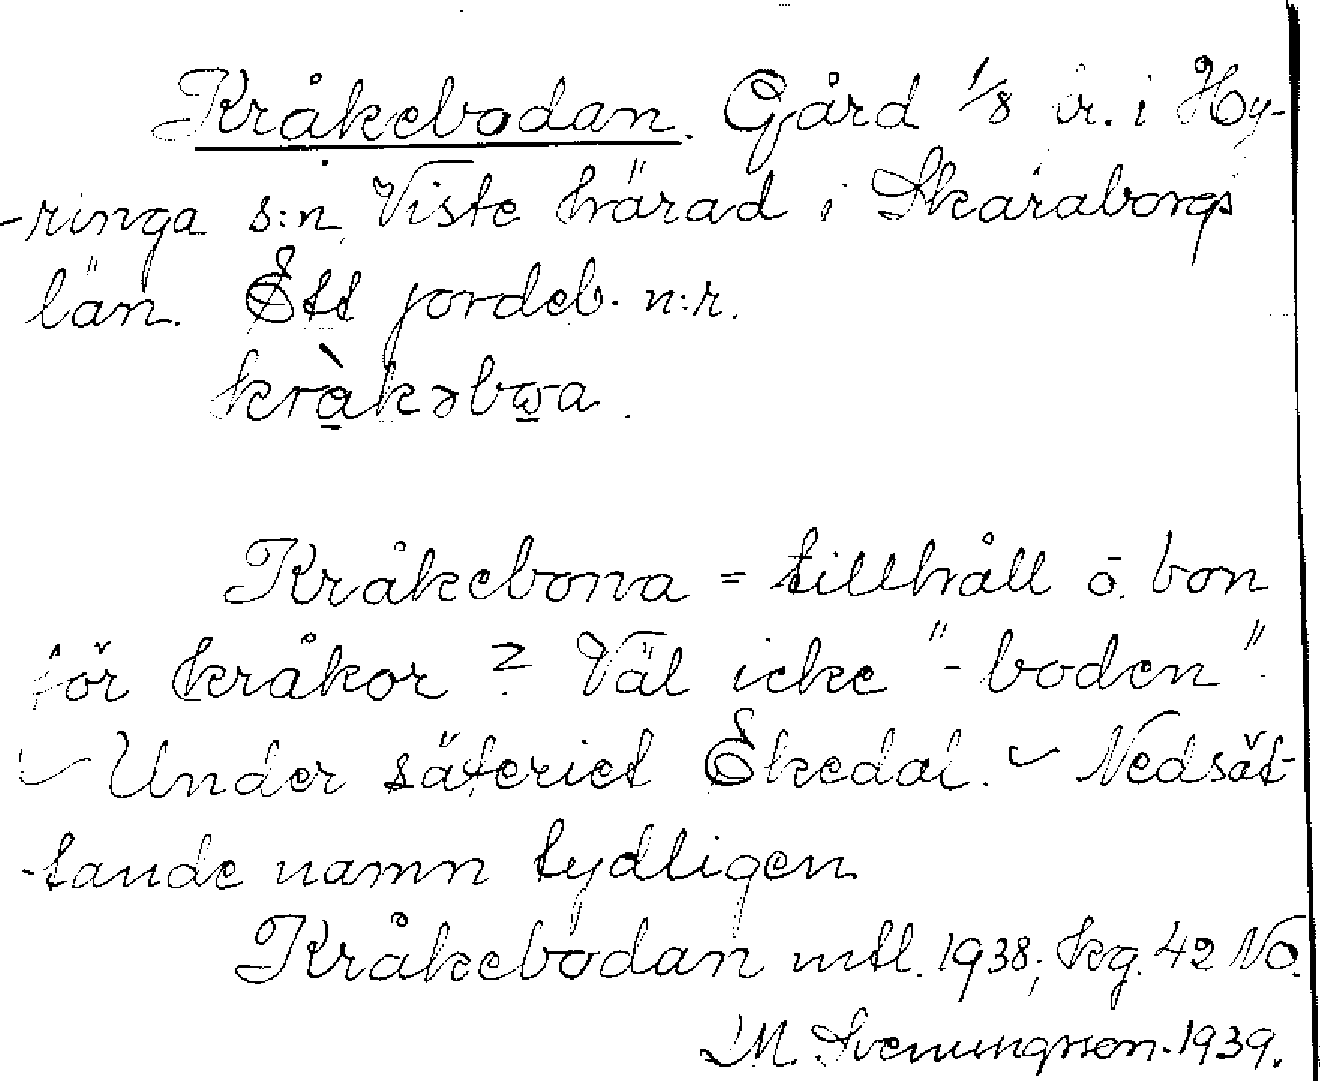 Kråkebodan. Gård 1/8 ir. i Hy-
-ringa s:n, Viste härad i Skaraborgs
län. Ett jordeb. n:r.
kràkəbωa.
Kråkebona = tillhåll o. bon
för kråkor? Väl icke "-boden".
Under säteriet Ekedal. Nedsät-
-tande namn tydligen
Kråkebodan mtl. 1938; kg. 42 NO.
M. Svenungsson. 1939.